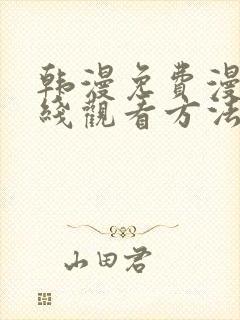 韩漫免費漫
綫觀看方法
山田君